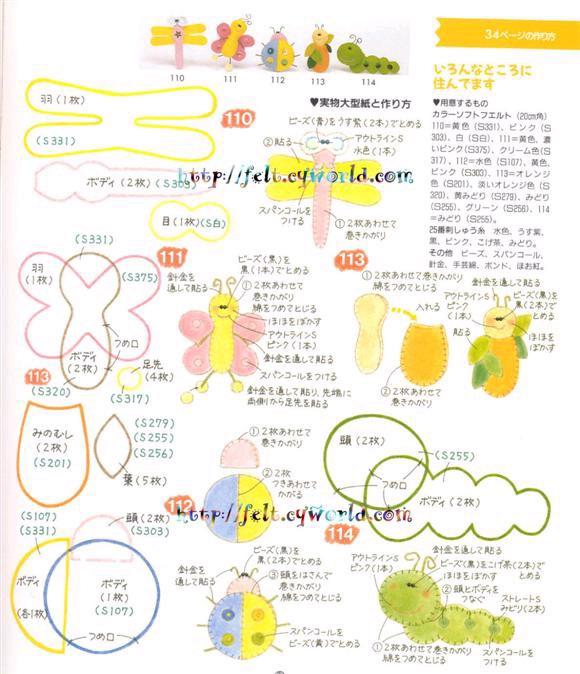 34ページの作り方
110
111
112
113
114
いろんなところに
住んでます
♥用意するもの
カラーソフトフェルト（20cm角）
110＝黄色（S331）、ピンク（S
303）、白（S白）。111＝黄色、濃
いピンク（S375）、クリーム色（S
317）。112＝水色（S107）、黄色、
ピンク（S303）。113＝オレンジ
色（S201）、淡いオレンジ色（S
320）、黄みどり（S279）、みどり
（S255）、グリーン（S256）。114
＝みどり（S255）。
25番刺しゅう糸 水色、うす紫、
黒、ピンク、こげ茶、みどり。
その他 ビーズ、スパンコール、
針金、手芸綿、ボンド、ほお紅。
♥実物大型紙と作り方
110
羽（1枚）
（S331）
ボディ（2枚）（S303）
目（1枚）（S白）
ビーズ（青）をうす紫（2本）でとめる
②貼る
アウトラインS
水色（1本）
スパンコールを
つける
①2枚あわせて
巻きかがり
http://felt.cyworld.com
111
（S331）
羽
（1枚）
（S375）
つめ口
ボディ
（2枚）
足先
（4枚）
（S317）
（S320）
針金を
通して貼る
ビーズ（黒）を
黒（1本）でとめる
①2枚あわせて
巻きかがり
綿をつめてとじる
ほほをぼかす
アウトラインS
ピンク（1本）
②貼る
スパンコールをつける
針金を通して貼り、先端に
両側から足先を貼る
113
①2枚あわせて巻きかがり
綿をつめてとじる
入れる
②2枚あわせて
巻きかがり
針金を
通して貼る
アウトラインS
ピンク
（1本）
ビーズ（黒）を
黒（2本）で
とめる
ほほを
ぼかす
③貼る
113
みのむし
（2枚）
（S201）
（S279）
（S255）
（S256）
葉（5枚）
112
（S107）
（S331）
頭（2枚）
（S303）
ボディ
（各1枚）
ボディ
（1枚）
（S107）
つめ口
①2枚あわせて
巻きかがり
②2枚
つきあわせて
巻きかがり
http://felt.cyworld.com
針金を
通して貼る
ビーズ（黒）を
黒（2本）でとめる
③頭をはさんで
巻きかがり
綿をつめてとじる
スパンコールを
ビーズ（黄）でとめる
114
頭（2枚）
（S255）
つめ口
ボディ（2枚）
アウトラインS
ピンク（1本）
針金を通して貼る
ビーズ（黒）をこげ茶（2本）で
とめる
ほほをぼかす
②頭とボディを
つなぐ
ストレートS
みどり（2本）
①2枚あわせて巻きかがり
綿をつめてとじる
スパンコールを
つける